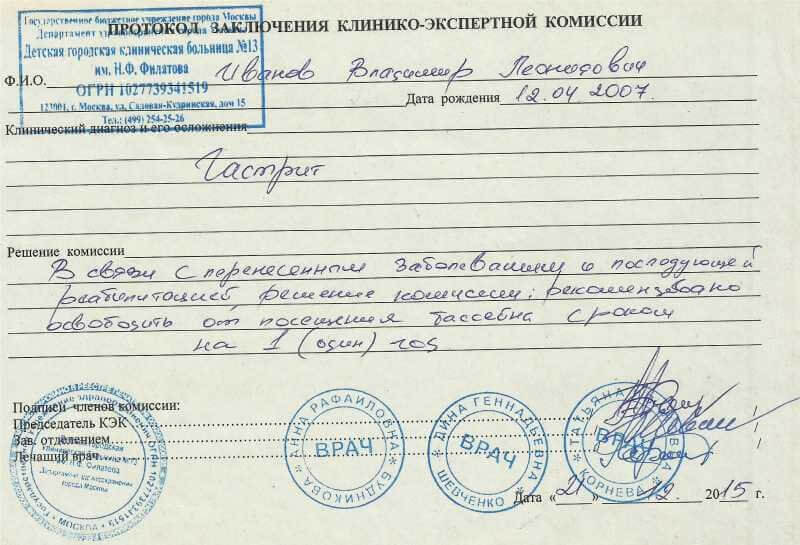 Государственное бюджетное учреждение города Москвы
ПРОТОКОЛ ЗАКЛЮЧЕНИЯ КЛИНИКО-ЭКСПЕРТНОЙ КОМИССИИ
Департамент здравоохранения города Москвы
Детская городская клиническая больница №13
им. Н.Ф. Филатова
Ф.И.О. Иванов Владимир Леонидович
ОГРН 1027739341519
123001, г. Москва, ул. Садовая-Кудринская, дом 15
Дата рождения 12.04 2007.
Тел.: (499) 254-25-26
Клинический диагноз и его осложнения
Гастрит
Решение комиссии
В связи с перенесенным заболеванием и последующей
реабилитацией, решение комиссии: рекомендовано
освободить от посещения бассейна сроком
на 1 (один) год
Подписи членов комиссии:
Председатель КЭК
Зав. отделением
Лечащий врач
АННА РАФАИЛОВНА
ВРАЧ
БУДНИКОВА
ДИНА ГЕННАДЬЕВНА
ВРАЧ
ШЕВЧЕНКО
ТАТЬЯНА
ВРАЧ
КОРНЕВА
им. Н.Ф. Филатова
Департамент здравоохранения
города Москвы
ОГРН 1027739341519
МОСКВА
Дата «21» 12 2015 г.